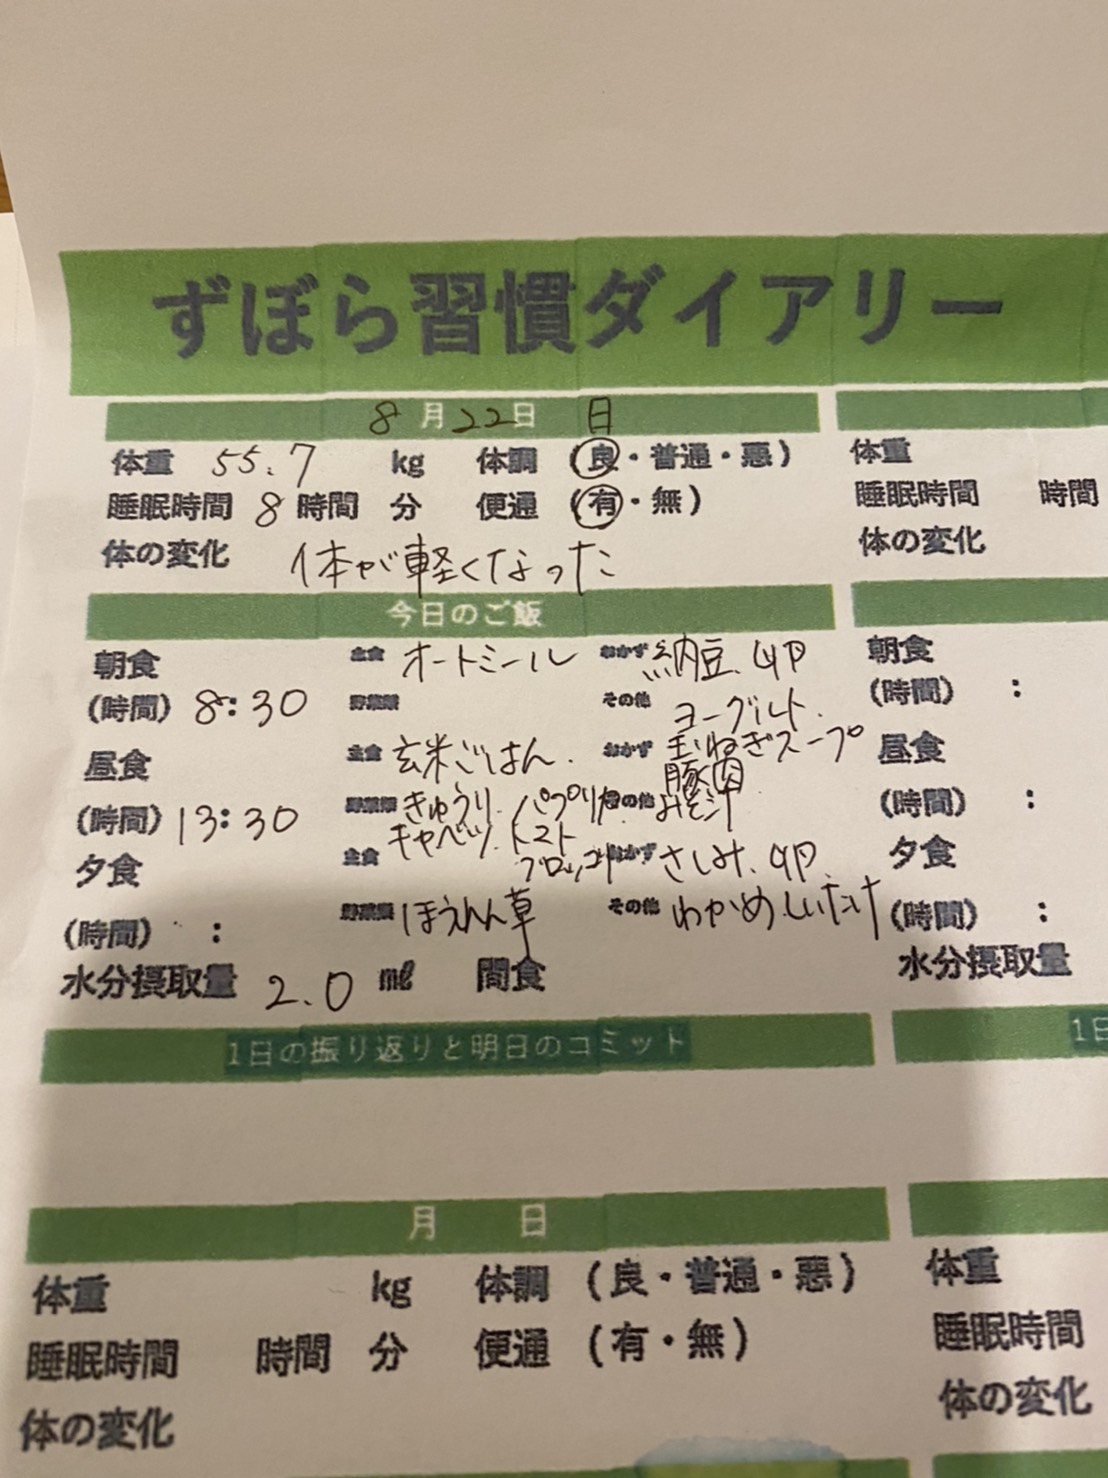 ずぼら習慣ダイアリー
8月22日 日
体重 55.7 kg 体調 (良・普通・悪)
体重
睡眠時間 8 時間 分 便通 (有・無)
睡眠時間 時間
体の変化 体が軽くなった
体の変化
今日のご飯
朝食 主食 オートミール おかず 納豆、卵
朝食
(時間) 8:30 野菜類 その他 ヨーグルト
(時間) :
昼食 主食 玄米ごはん おかず 玉ねぎスープ
豚肉
昼食
(時間) 13:30 野菜類 きゅうり、パプリカ その他 みそ汁
キャベツ、トマト
ブロッコリ
(時間) :
夕食 主食 おかず さしみ、卵
夕食
(時間) : 野菜類 ほうれん草 その他 わかめしいたけ
(時間) :
水分摂取量 2.0 ㎖ 間食
水分摂取量
1日の振り返りと明日のコミット
1日
月 日
体重 kg 体調 (良・普通・悪)
体重
睡眠時間 時間 分 便通 (有・無)
睡眠時間
体の変化
体の変化